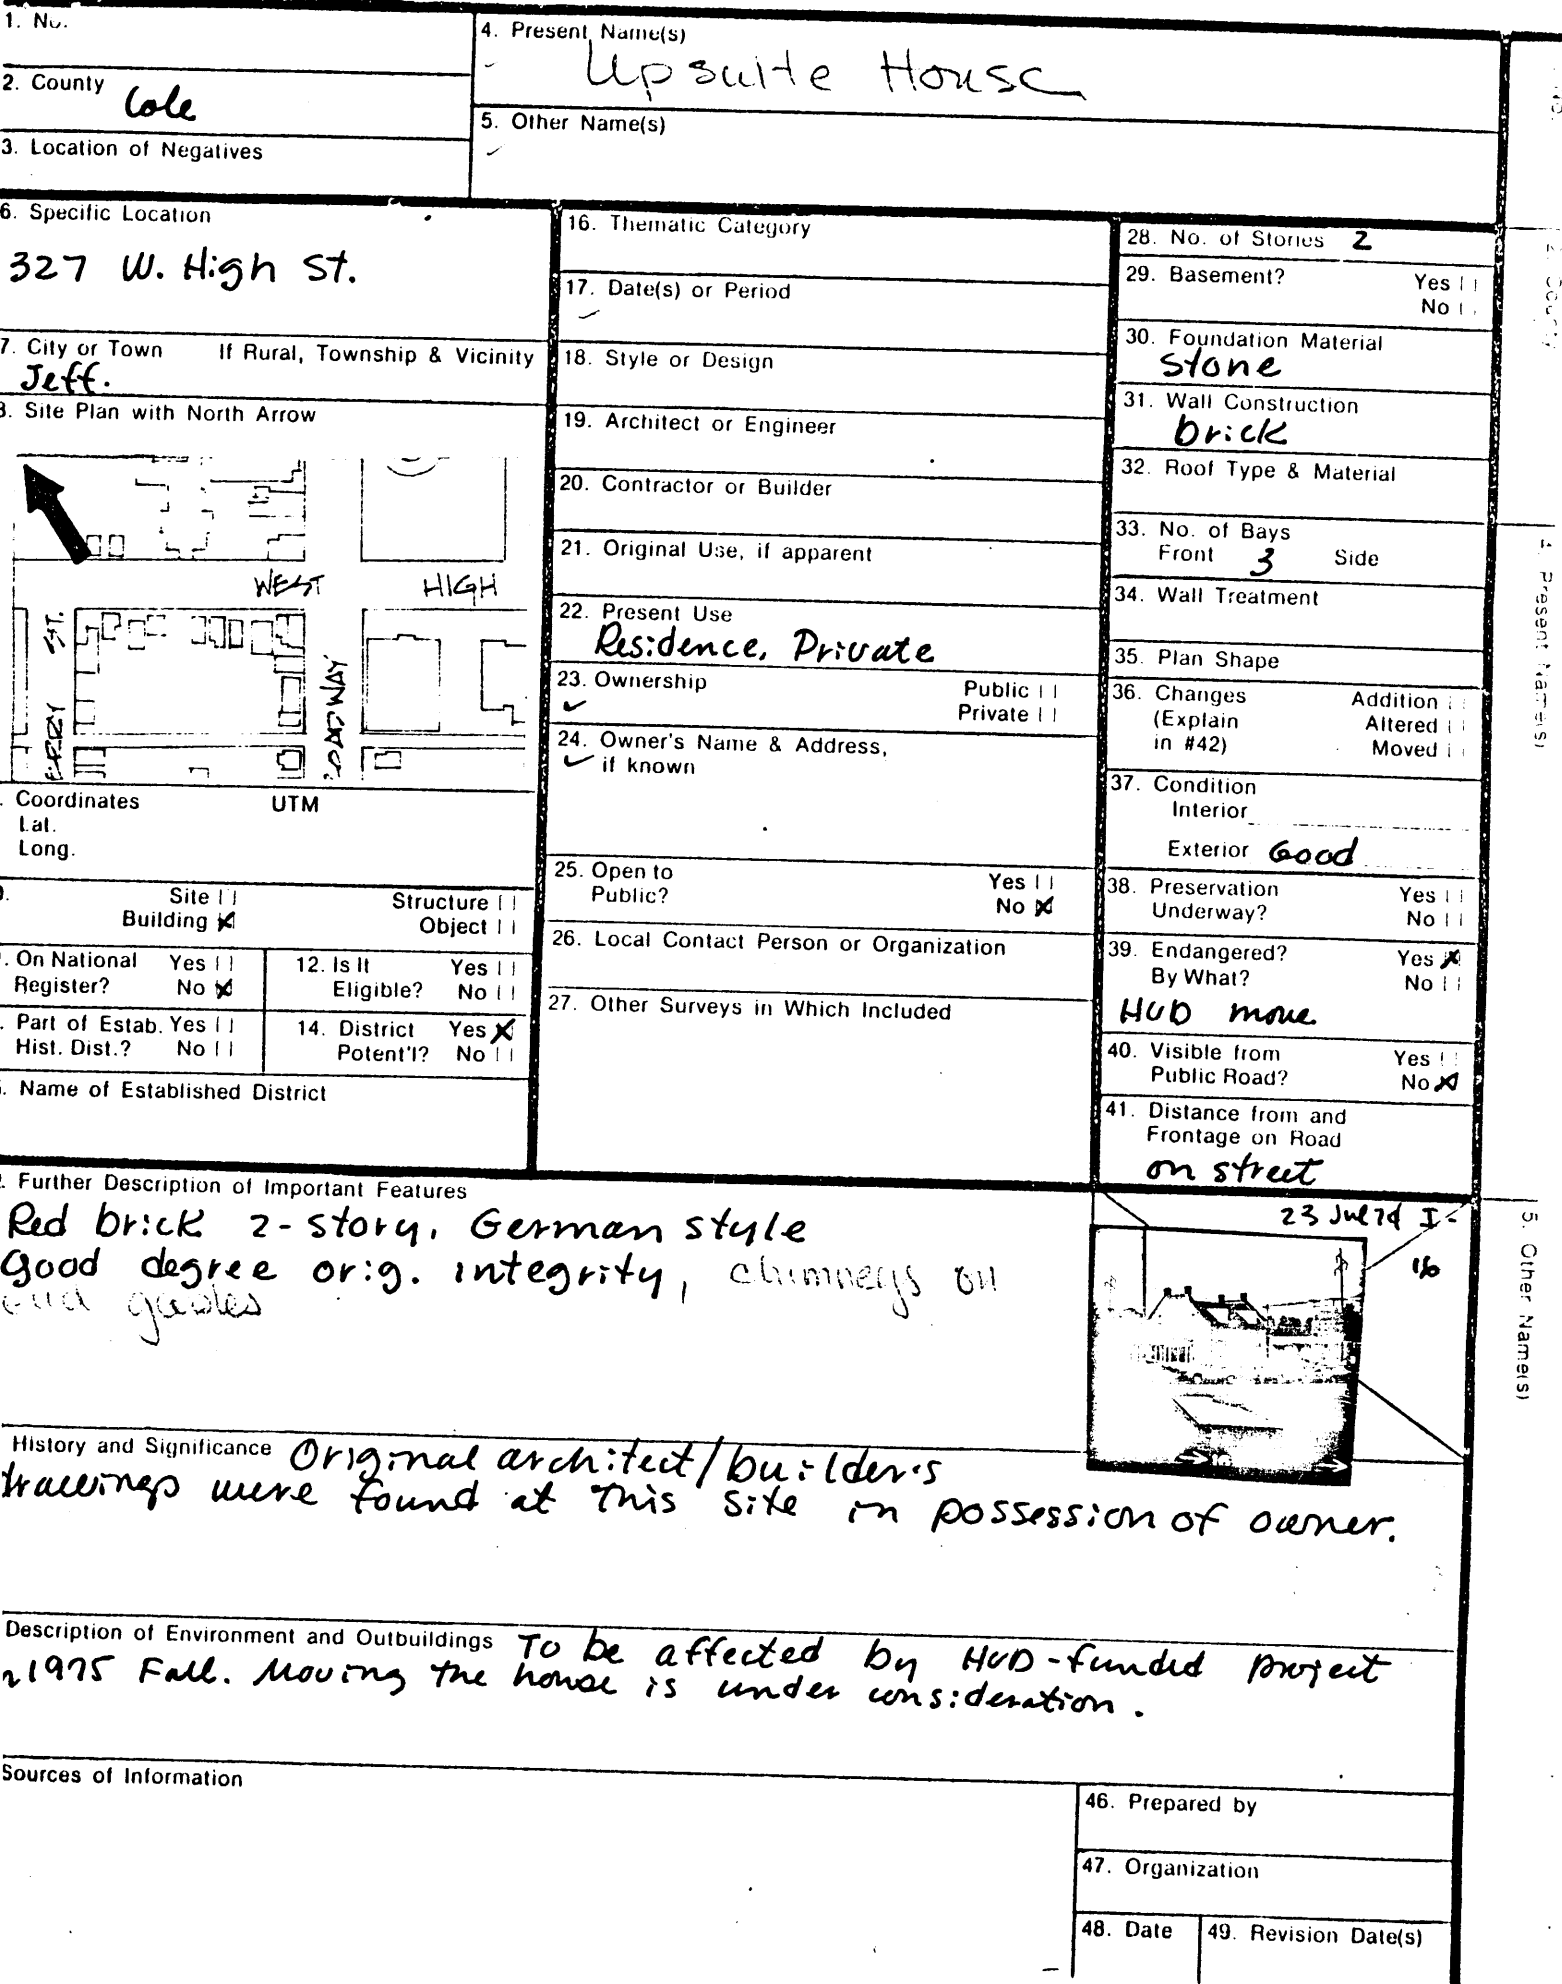 1. No.
4. Present Name(s)
Upsuite House
2. County
Cole
5. Other Name(s)
3. Location of Negatives
6. Specific Location
327 W. High St.
7. City or Town If Rural, Township & Vicinity
Jeff.
8. Site Plan with North Arrow
WEST HIGH
ST.
Coordinates UTM
Lat.
Long.
Site Structure
Building Object
On National Register? Yes No
12. Is It Eligible? Yes No
Part of Estab. Hist. Dist.? Yes No
14. District Potent'l? Yes No
Name of Established District
16. Thematic Category
17. Date(s) or Period
18. Style or Design
19. Architect or Engineer
20. Contractor or Builder
21. Original Use, if apparent
22. Present Use
Residence, Private
23. Ownership Public
Private
24. Owner's Name & Address,
if known
25. Open to Yes
Public? No
26. Local Contact Person or Organization
27. Other Surveys in Which Included
28. No. of Stories 2
29. Basement? Yes
No
30. Foundation Material
stone
31. Wall Construction
brick
32. Roof Type & Material
33. No. of Bays
Front 3 Side
34. Wall Treatment
35. Plan Shape
36. Changes Addition
(Explain Altered
in #42) Moved
37. Condition
Interior
Exterior Good
38. Preservation Yes
Underway? No
39. Endangered? Yes
By What? No
HUD move
40. Visible from Yes
Public Road? No
41. Distance from and
Frontage on Road
on street
Further Description of Important Features
Red brick 2-story, German style
Good degree orig. integrity, chimneys on
end gables
History and Significance Original architect/builder's
drawings were found at this site in possession of owner.
Description of Environment and Outbuildings To be affected by HUD-funded project
1975 Fall. Moving the house is under consideration.
Sources of Information
46. Prepared by
47. Organization
48. Date 49. Revision Date(s)
2. County
4. Present Name(s)
5. Other Name(s)